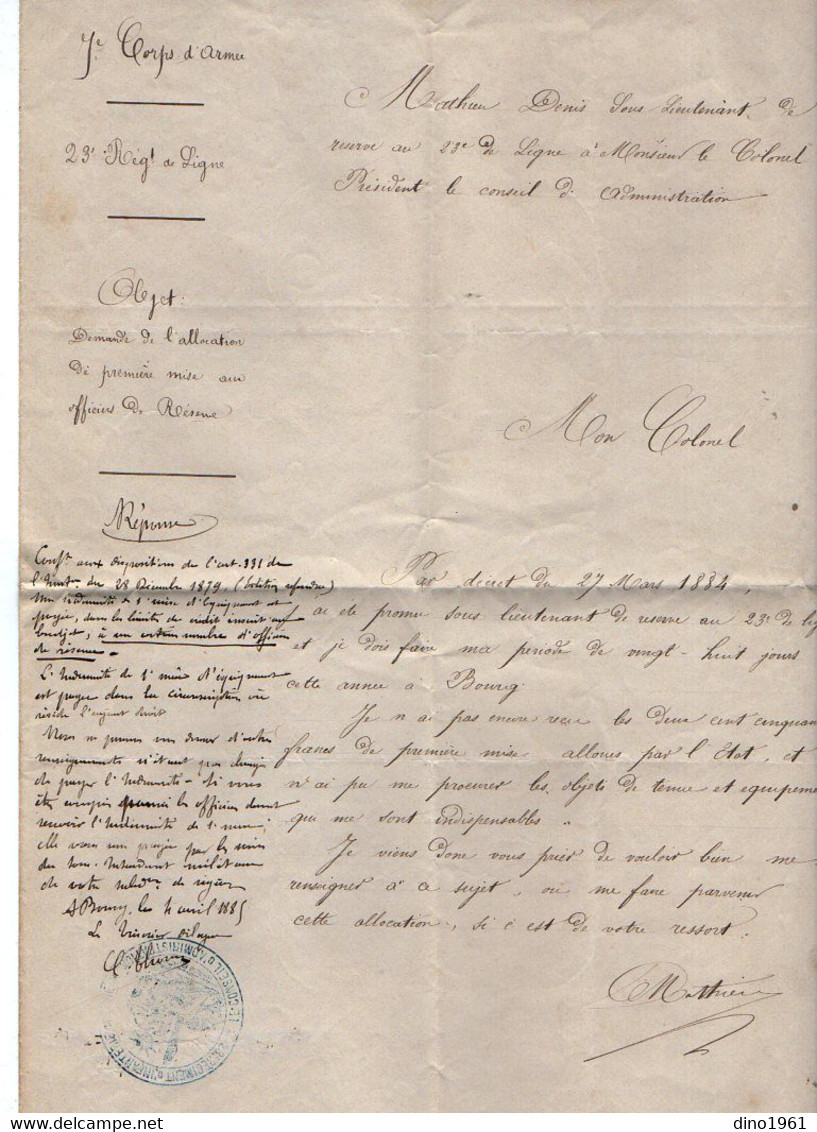 7e Corps d'Armée
23e Régt de Ligne
Objet:
Demande de l'allocation
de première mise aux
officiers de Réserve
Mathieu Denis Sous Lieutenant de
reserve au 23e de Ligne à Monsieur le Colonel
Président le conseil d'administration
Mon Colonel
Par décret du 27 Mars 1884,
ai été promu sous lieutenant de reserve au 23e de lig
et je dois faire ma periode de vingt-huit jours
cette année à Bourg
Je n'ai pas encore reçu les deux cent cinquan
francs de première mise alloués par l'Etat, et
n'ai pu me procurer les objets de tenue et equipeme
qui me sont indispensables.
Je viens donc vous prier de vouloir bien me
renseigner à ce sujet, ou me faire parvenir
cette allocation, si c'est de votre ressort.
Mathieu
Réponse
Conft aux dispositions de l'art. 331 de
l'Instr. du 28 Décembre 1879, (édition refondue)
une indemnité de 1e mise d'équipement est
payée, dans les limites du crédit inscrit au
budget, à un certain nombre d'officiers
de réserve.
L'Indemnité de 1e mise d'équipement
est payée dans la circonscription où
réside l'ayant droit
Nous ne pouvons vous donner d'autres
renseignements n'étant pas chargés
de payer l'Indemnité - Si vous
êtes compris parmi les officiers devant
recevoir l'Indemnité de 1e mise,
elle vous sera payée par les soins
du Sous-Intendant militaire
de votre
A Bourg, le 4 avril 1885
Le Trésorier
CONSEIL D'ADMINISTRATION
23e REGIMENT D'INFANTERIE
dino1961